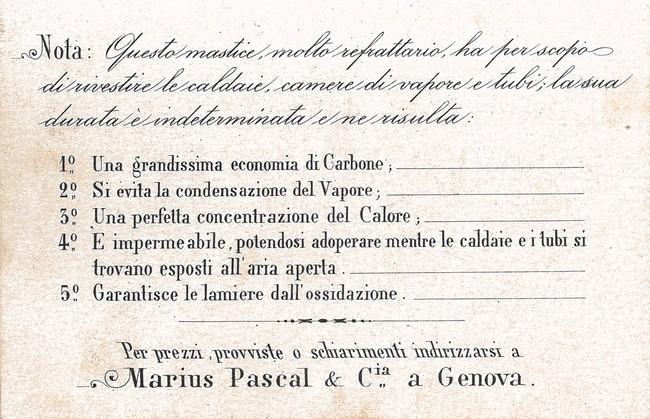 Nota: Questo mastice, molto refrattario, ha per scopo
di rivestire le caldaie, camere di vapore e tubi; la sua
durata è indeterminata e ne risulta:
1º Una grandissima economia di Carbone;
2º Si evita la condensazione del Vapore;
3º Una perfetta concentrazione del Calore;
4º È impermeabile, potendosi adoperare mentre le caldaie e i tubi si
trovano esposti all'aria aperta.
5º Garantisce le lamiere dall'ossidazione.
Per prezzi, provviste o schiarimenti indirizzarsi a
Marius Pascal & Cia a Genova.